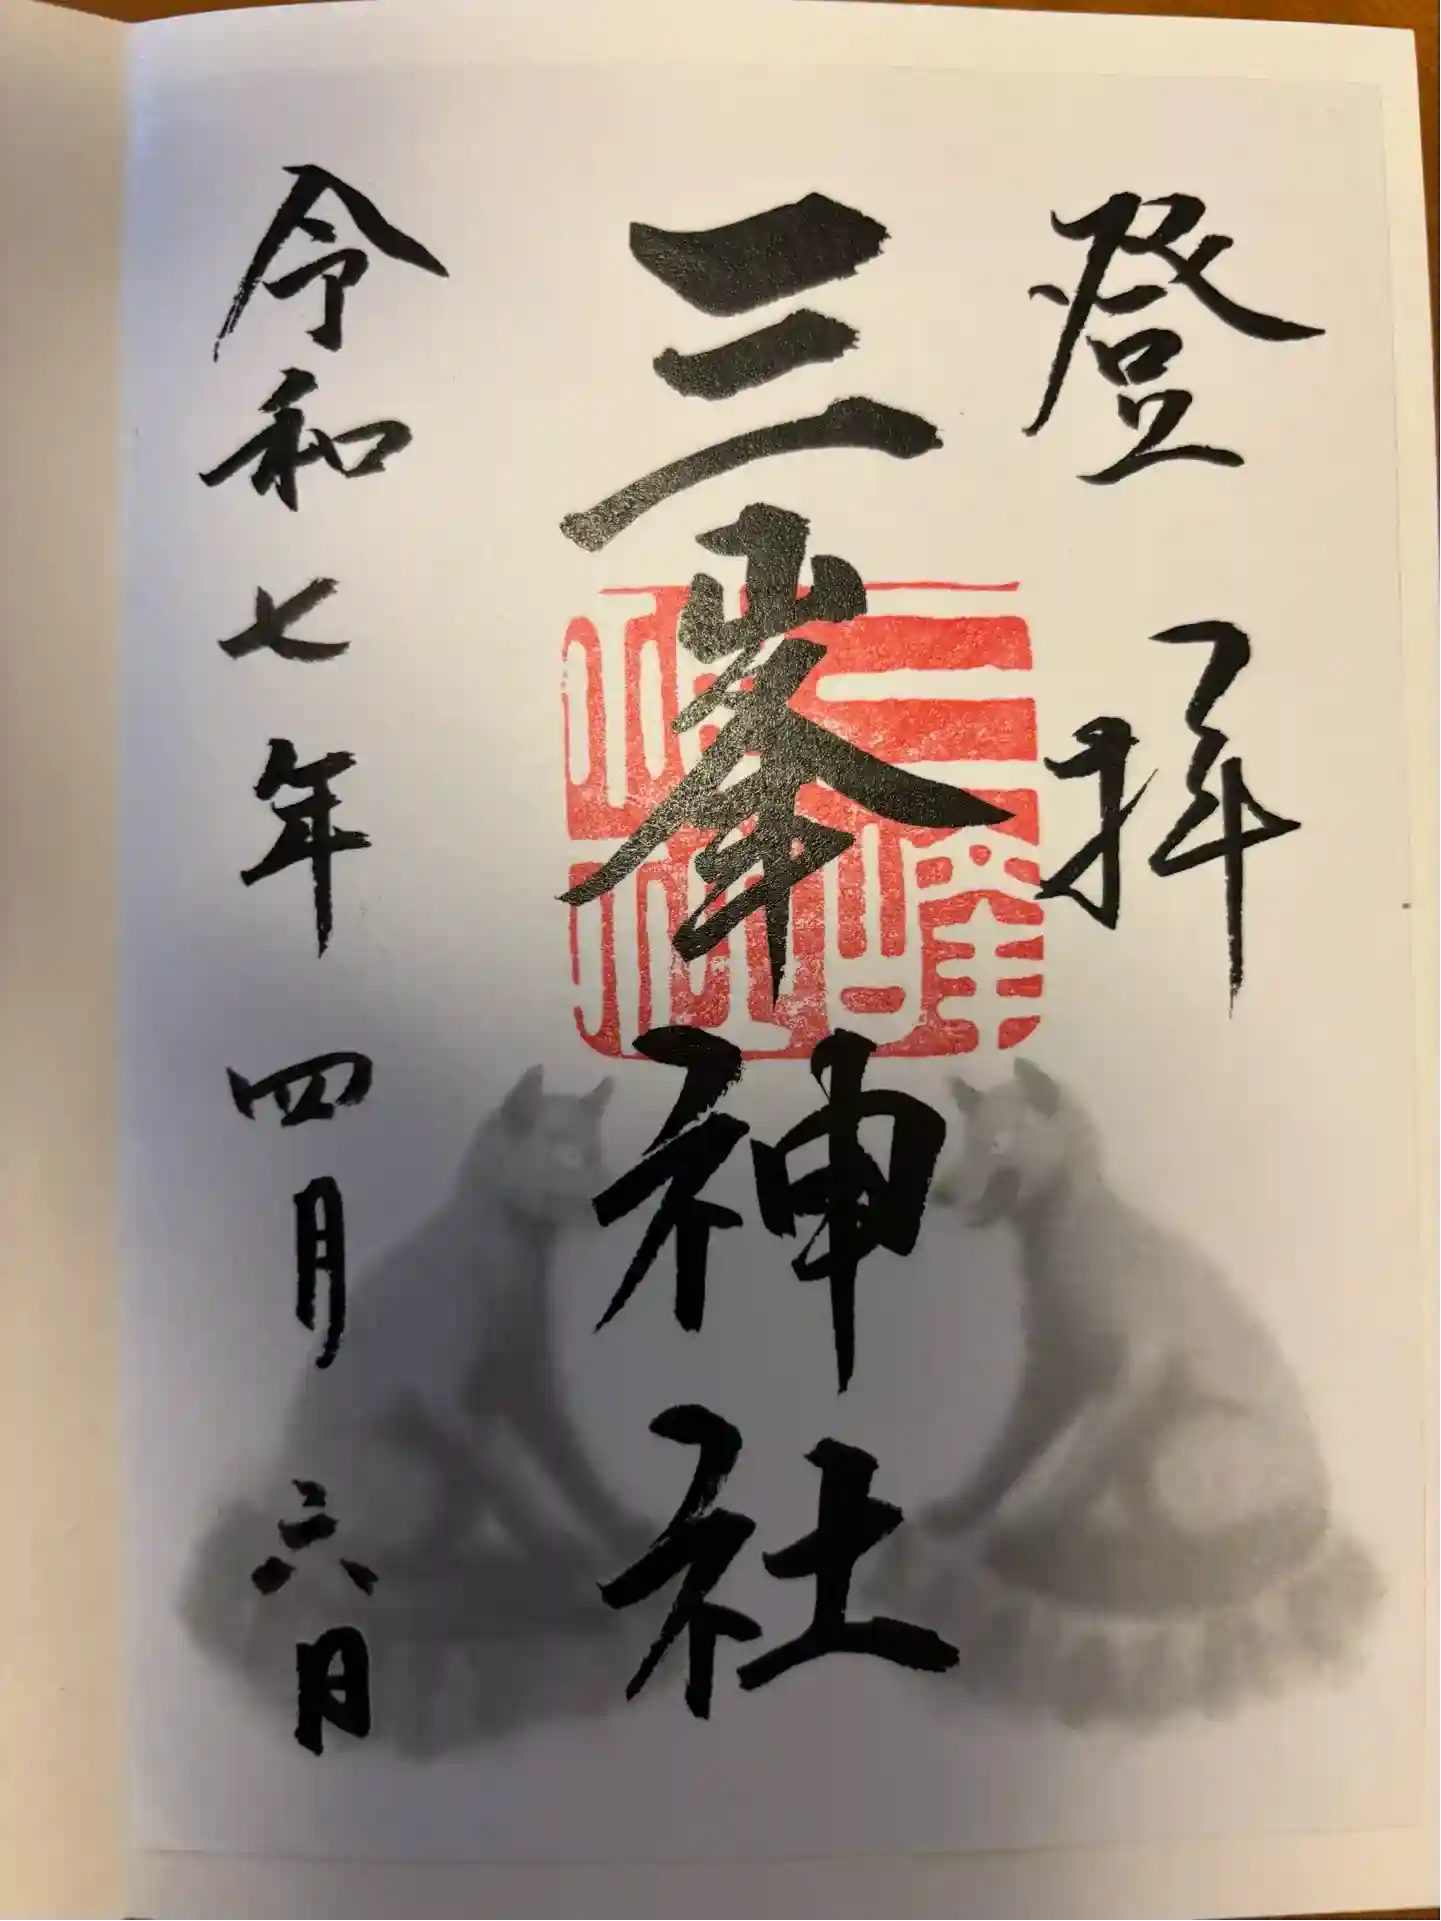 登拝
三峯神社
令和七年四月六日